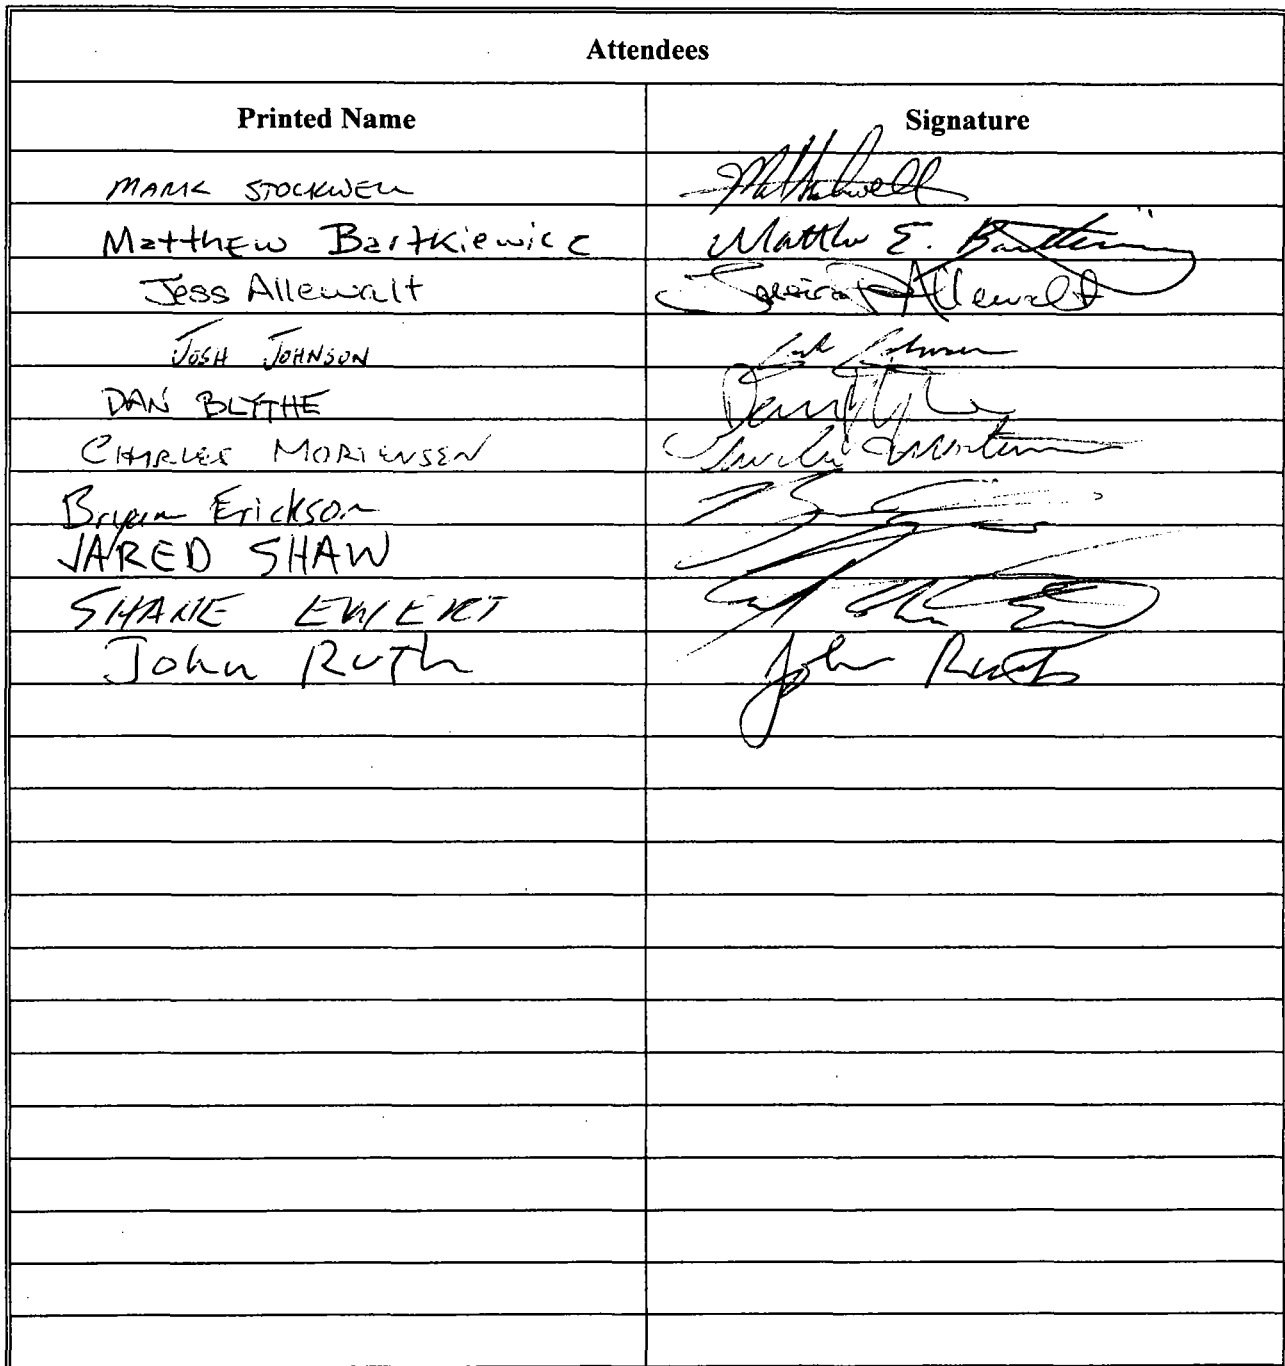 Attendees
Printed Name Signature
MARK STOCKWELL
Matthew Bartkiewicz Matthew E.
Jess Allewalt Allewalt
JOSH JOHNSON Josh Johnson
DAN BLYTHE
CHARLES MORTENSEN
Bryan Erickson
JARED SHAW
SHANE EWERT
John Ruth John Ruth